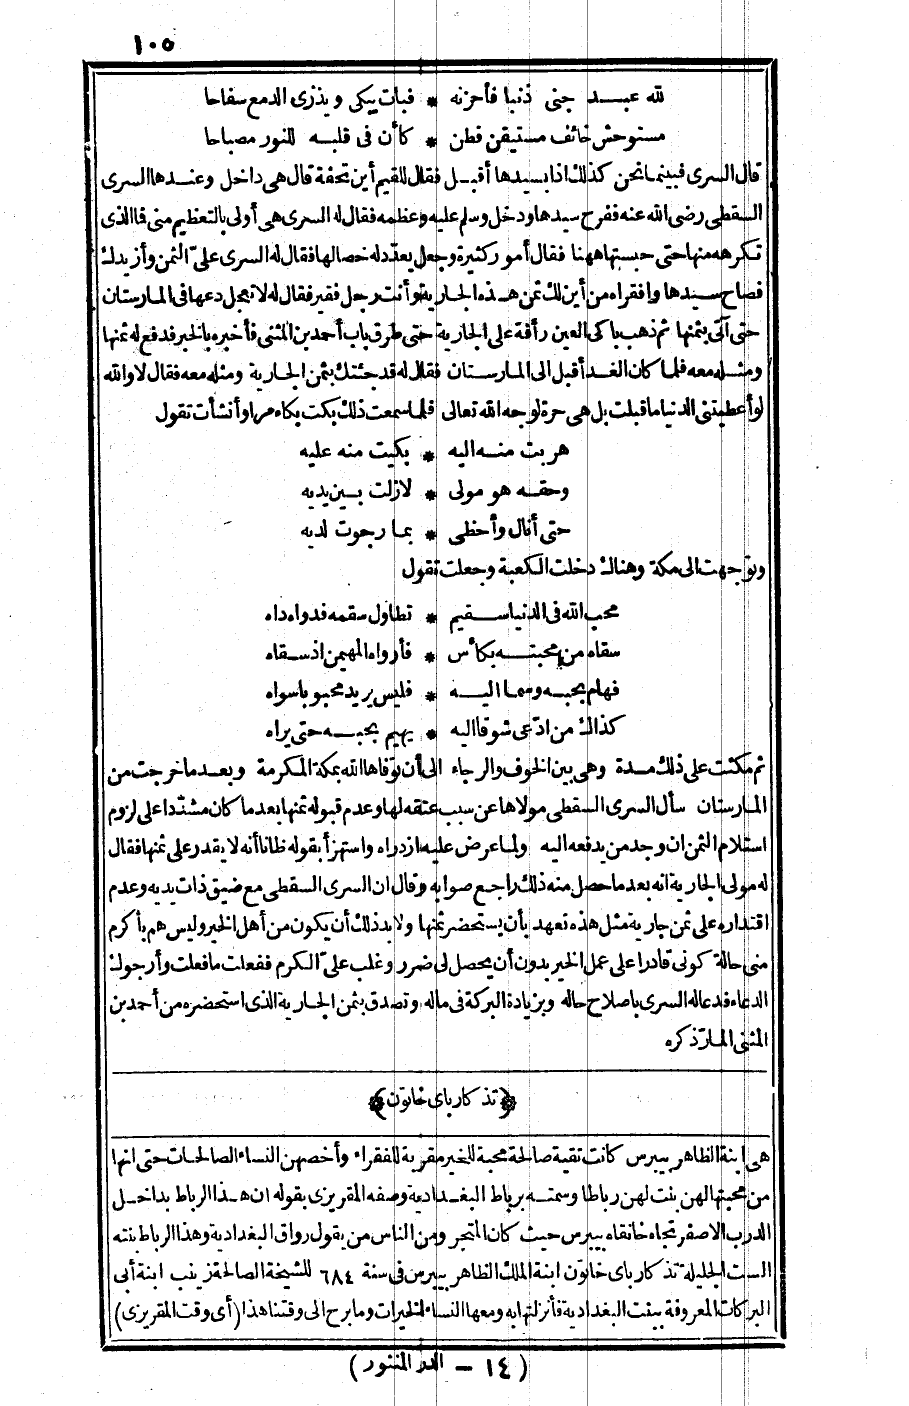 ١٠٥
لله عبد جنى ذنبا فأحزنه * فبات يبكى ويذرى الدمع سفاحا
مستوحش خائف مستيقن فطن * كأن فى قلبه للنور مصباحا
قال السرى فبينما نحن كذلك اذا بسيدها أقبل فقال للقيم أين تحفة قال هى داخل وعندها السرى
السقطى رضى الله عنه ففرح سيدها ودخل وسلم عليه وعظمه فقال له السرى هى أولى بالتعظيم منى فما الذى
تكرهه منها حتى حبستها ههنا فقال أمور كثيرة وجعل يعدّد له خصالها فقال له السرى علىّ الثمن وأزيدك
فصاح سيدها وافقراه من أين لك ثمن هذه الجارية وأنت رجل فقير فقال له لا تعجل دعها فى المارستان
حتى آتى بثمنها ثم ذهب باكى العين رأفة على الجارية حتى طرق باب أحمد بن المثنى فأخبره بالخبر فدفع له ثمنها
ومثله معه فلما كان الغد أقبل الى المارستان فقال له قد جئتك بثمن الجارية ومثله معه فقال لا والله
لو أعطيتنى الدنيا ما قبلت بل هى حرة لوجه الله تعالى فلما سمعت ذلك بكت بكاء مرا وأنشأت تقول
هربت منه اليه * بكيت منه عليه
وحقه هو مولى * لازلت بين يديه
حتى أنال وأحظى * بما رجوت لديه
وتوجهت الى مكة وهناك دخلت الكعبة وجعلت تقول
محب الله فى الدنيا سقيم * تطاول سقمه فدواه داه
سقاه من محبته بكأس * فأرواه المهيمن اذ سقاه
فهام بحبه وسما اليه * فليس يريد محبوبا سواه
كذاك من ادّعى شوقا اليه * يهيم بحبه حتى يراه
ثم مكثت على ذلك مدة وهى بين الخوف والرجاء الى أن توفاها الله بمكة المكرمة وبعد ما خرجت من
المارستان سأل السرى السقطى مولاها عن سبب عتقه لها وعدم قبوله ثمنها بعد ما كان مشتدا على لزوم
استلام الثمن ان وجد من يدفعه اليه ولما عرض عليه ازدراه واستهزأ بقوله ظانا أنه لا يقدر على ثمنها فقال
له مولى الجارية انه بعد ما حصل منه ذلك راجع صوابه وقال ان السرى السقطى مع ضيق ذات يديه وعدم
اقتداره على ثمن جارية مثل هذه تعهد بأن يستحضر ثمنها ولا بد لذلك أن يكون من أهل الخير وليس هم بأكرم
منى حالة كونى قادرا على عمل الخير بدون أن يحصل لى ضرر وغلب علىّ الكرم ففعلت ما فعلت وأرجوك
الدعاء فدعا له السرى باصلاح حاله وبزيادة البركة فى ماله وتصدق بثمن الجارية الذى استحضره من أحمد بن
المثنى المارّ ذكره
﴿تذكارباى خاتون﴾
هى ابنة الظاهر بيبرس كانت تقية صالحة محبة للخير مقربة للفقراء وأخصهن النساء الصالحات حتى انها
من محبتها لهن بنت لهن رباطا وسمته برباط البغدادية وصفه المقريزى بقوله ان هذا الرباط بداخل
الدرب الاصفر تجاه خانقاه بيبرس حيث كان المنحر ومن الناس من يقول رواق البغدادية وهذا الرباط بنته
الست الجليلة تذكارباى خاتون ابنة الملك الظاهر بيبرس فى سنة ٦٨٤ للشيخة الصالحة زينب ابنة أبى
البركات المعروفة ببنت البغدادية فأنزلتها به ومعها النساء الخيرات وما برح الى وقتنا هذا (أى وقت المقريزى)
(١٤ - الدر المنثور)